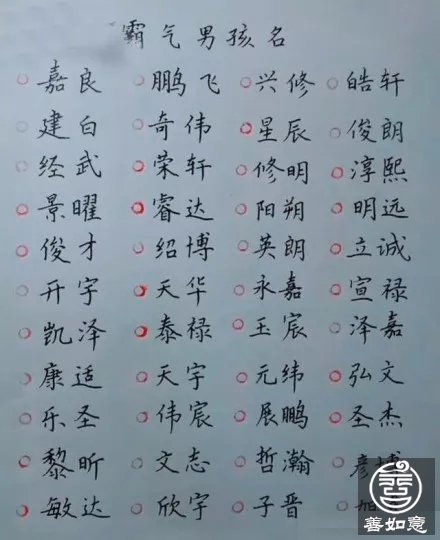 霸气男孩名
嘉良 鹏飞 兴修 皓轩
建白 奇伟 星辰 俊朗
经武 荣轩 修明 淳熙
景曜 睿达 阳朔 明远
俊才 绍博 英朗 立诚
开宇 天华 永嘉 宣禄
凯泽 泰禄 玉宸 泽嘉
康适 天宇 元纬 弘文
乐圣 伟宸 展鹏 圣杰
黎昕 文志 哲瀚 彦博
敏达 欣宇 子晋
善如意